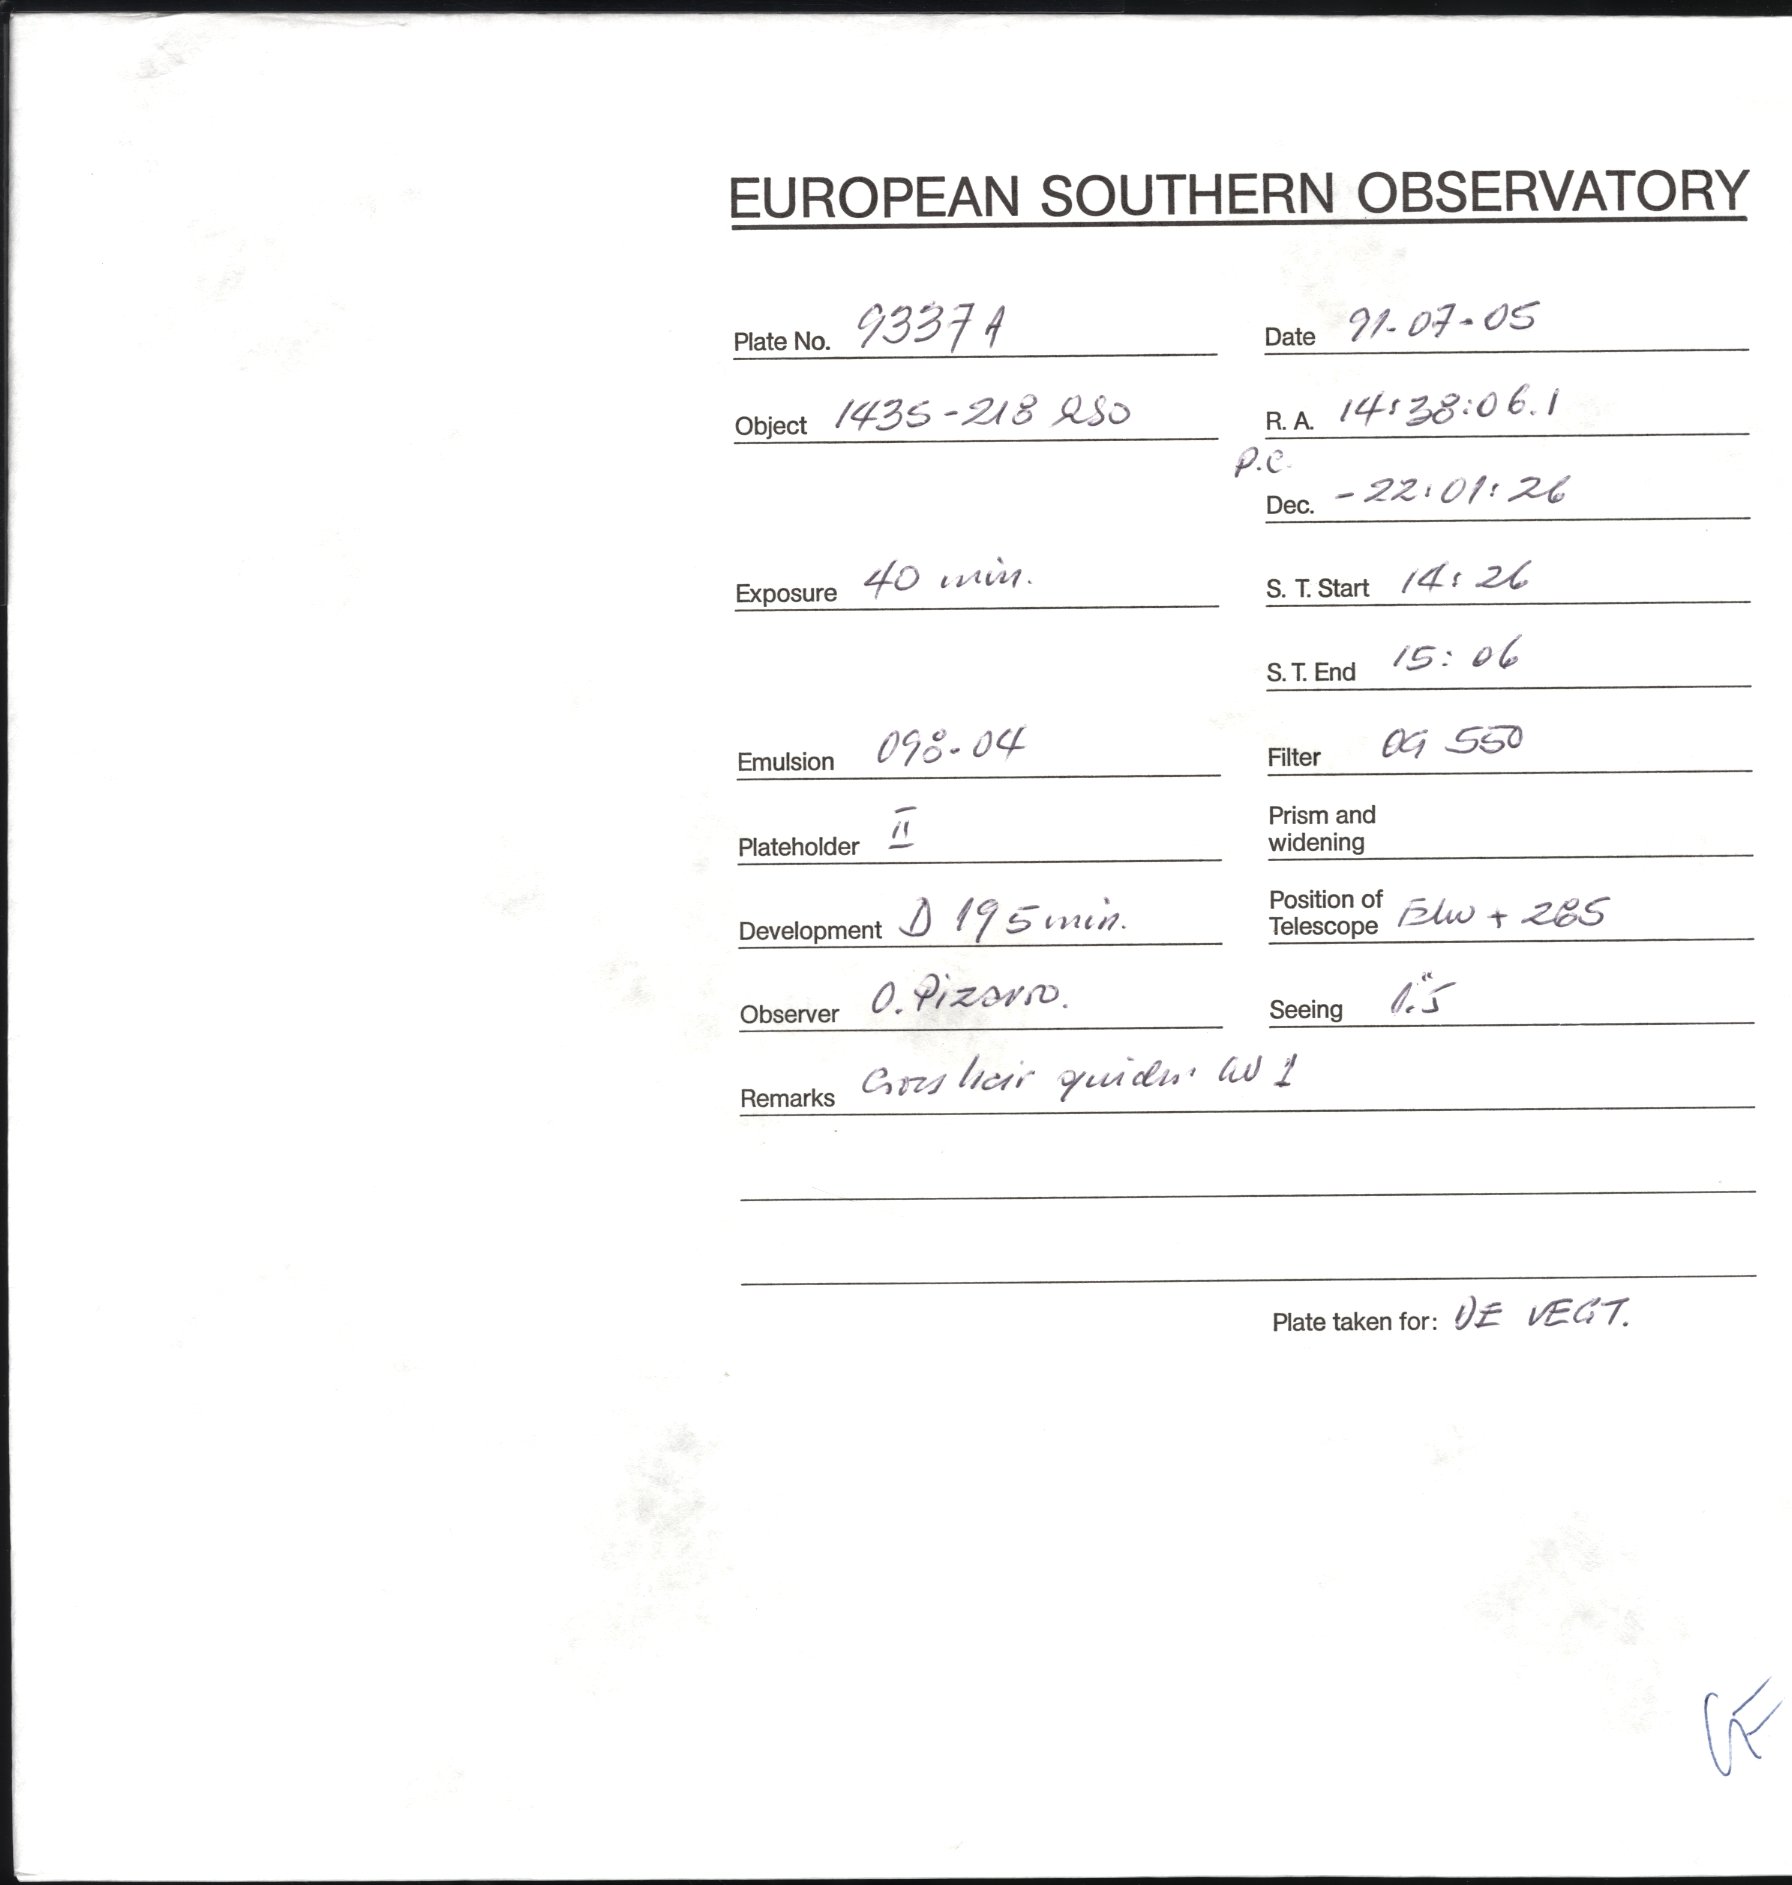 EUROPEAN SOUTHERN OBSERVATORY
Plate No. 9337A Date 91-07-05
Object 1435-218 QSO R. A. 14:38:06.1
P.C.
Dec. -22:01:26
Exposure 40 min. S. T. Start 14:26
S. T. End 15:06
Emulsion 098-04 Filter OG 550
Plateholder II Prism and
widening
Development D 19 5 min. Position of
Telescope + 285
Observer O. Pizarro. Seeing 1."5
Remarks guider
Plate taken for: DE VEGT.